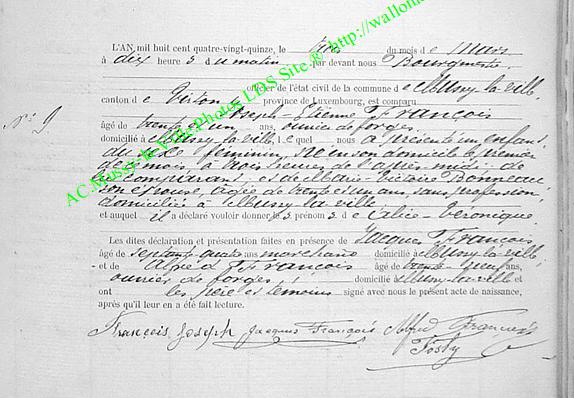 AC.Mussy-la-Ville Photos LDS Site @ http://wallonia
L'AN, mil huit cent quatre-vingt-quinze, le trois du mois de Mars
à dix heures du matin par devant nous Bourgmestre
officier de l'état civil de la commune de Mussy-la-ville,
canton de Virton province de Luxembourg, est comparu
N° 9
Joseph-Etienne François
âgé de trente un ans, ouvrier de forges
domicilié à Mussy-la-ville, lequel nous a présenté un enfant
du sexe féminin, né en son domicile, le premier
de ce mois à trois heures de
lui comparant et de Marie-Victoire Bonneau
son épouse, âgée de trente un ans, sans profession,
domiciliés à Mussy-la-ville
et auquel il a déclaré vouloir donner les prénoms de Alice-Véronique
Les dites déclaration et présentation faites en présence de Jacques François
âgé de septante quatre ans, marchand domicilié à Mussy-la-ville
et de Alfred François âgé de trente-neuf ans,
ouvrier de forges domicilié Mussy-la-ville et
ont les père et témoins signé avec nous le présent acte de naissance,
après qu'il leur en a été fait lecture.
François Joseph Jacques François Alfred François